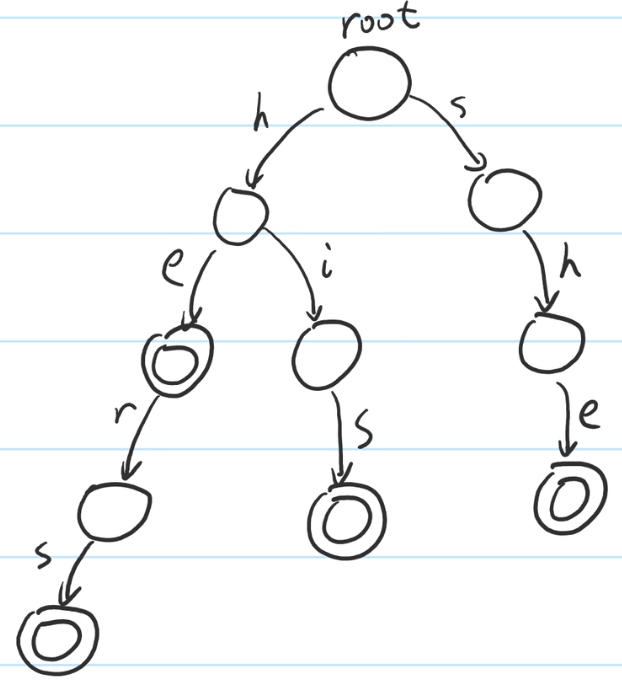 root
h s
e i h
r s e
s